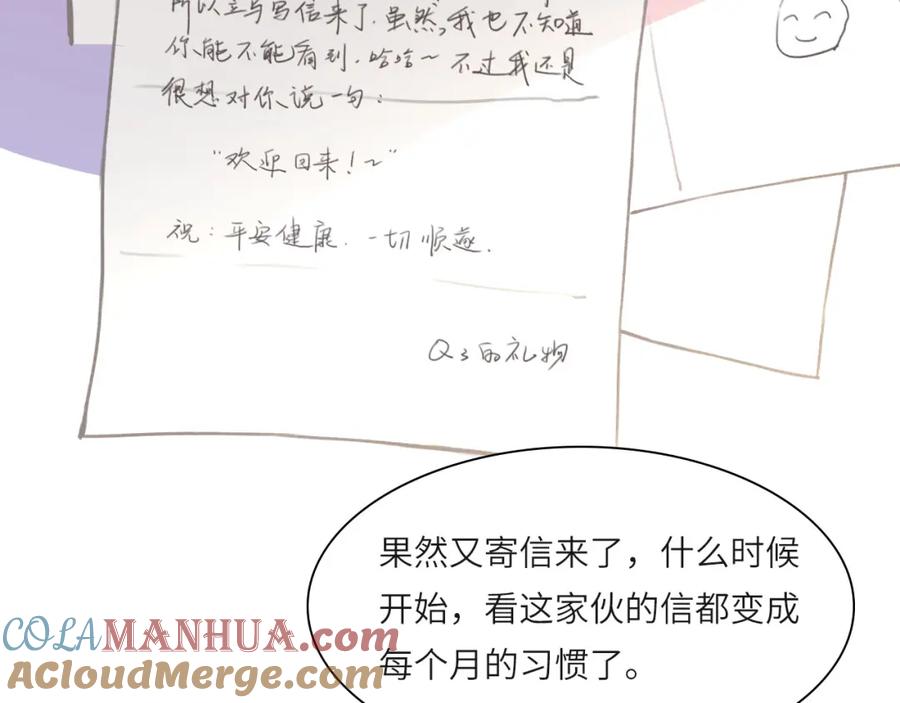 所以立马写信来了.虽然,我也不知道
你能不能看到.哈哈~ 不过我还是
很想对你说一句:
"欢迎回来!~"
祝:平安健康.一切顺遂.
Q3的礼物
果然又寄信来了，什么时候
开始，看这家伙的信都变成
每个月的习惯了。
COLAMANHUA.com
AcloudMerge.com